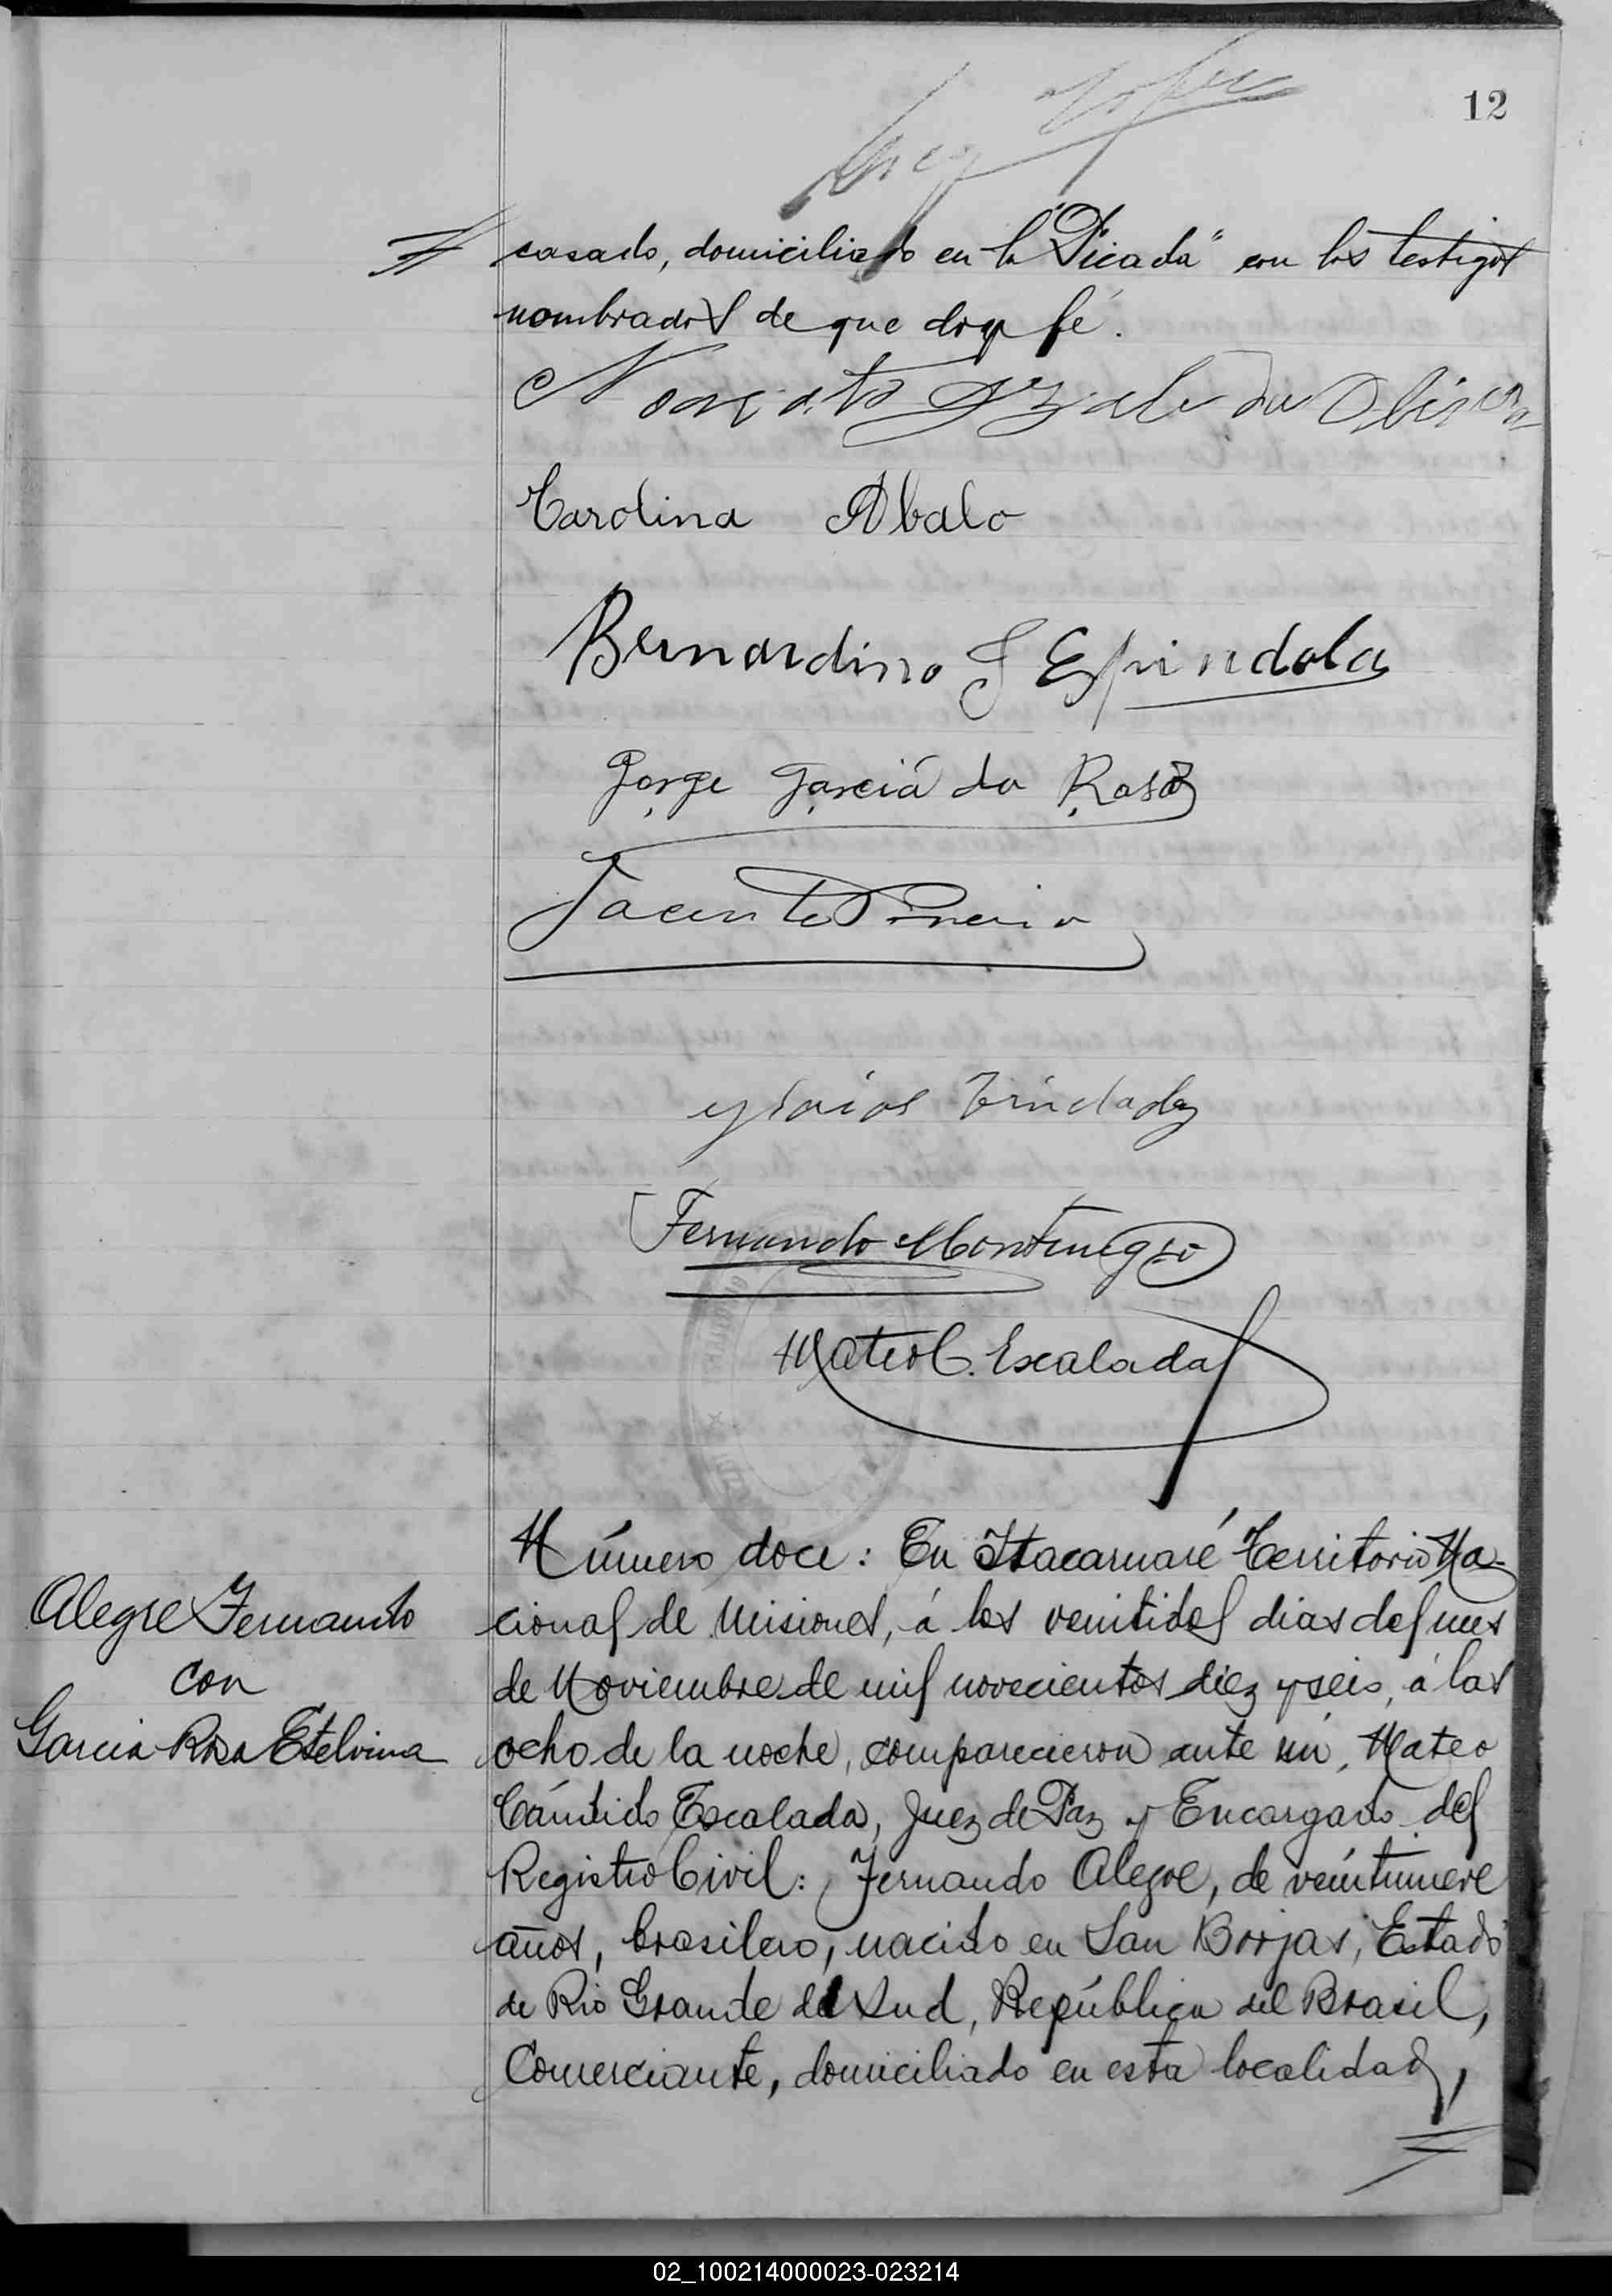 12
casado, domiciliado en la "Picada" con los testigos
nombrados de que doy fé.
Carolina Abalo
Bernardino J Espindola
Jorge Garciá da Rosa
Fernando Montenegro
Mateo C. Escalada
Número doce: En Itacaruaré Territorio Na-
cional de Misiones, á los veintidos dias del mes
de Noviembre de mil novecientos diez y seis, á las
ocho de la noche, comparecieron ante mí, Mateo
Cándido Escalada, Juez de Paz y Encargado del
Registro Civil: Fernando Alegre, de veintinueve
años, brasilero, nacido en San Borjas, Estado
de Rio Grande del Sud, República del Brasil,
Comerciante, domiciliado en esta localidad,
Alegre Fernando
con
Garcia Rosa Etelvina
02_100214000023-023214